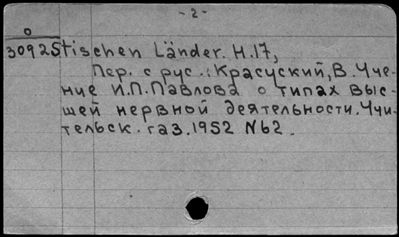 -2-
о
30925 tischen Länder. H.17,
Пер. с рус.: Красуский, В. Уче-
ние И.П.Павлова о типах выс-
шей нервной деятельности. Учи-
тельск. газ. 1952 №62.